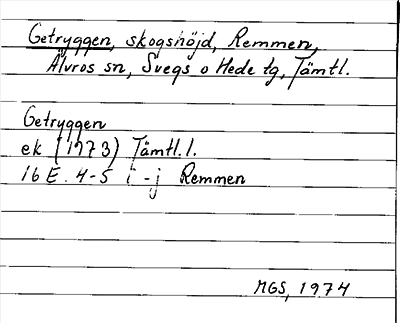 Getryggen, skogshöjd, Remmen,
Älvros sn, Svegs o Hede tg, Jämtl.
Getryggen
ek (1973) Jämtl. l.
16 E. 4-5 i - j Remmen
MGS, 1974